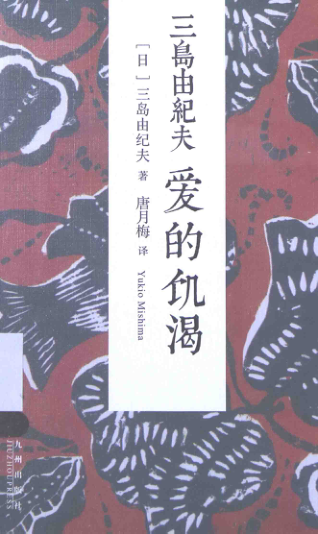 三島由紀夫 爱的饥渴
［日］三岛由纪夫 著
唐月梅 译
Yukio Mishima
九州出版社
JIUZHOUPRESS